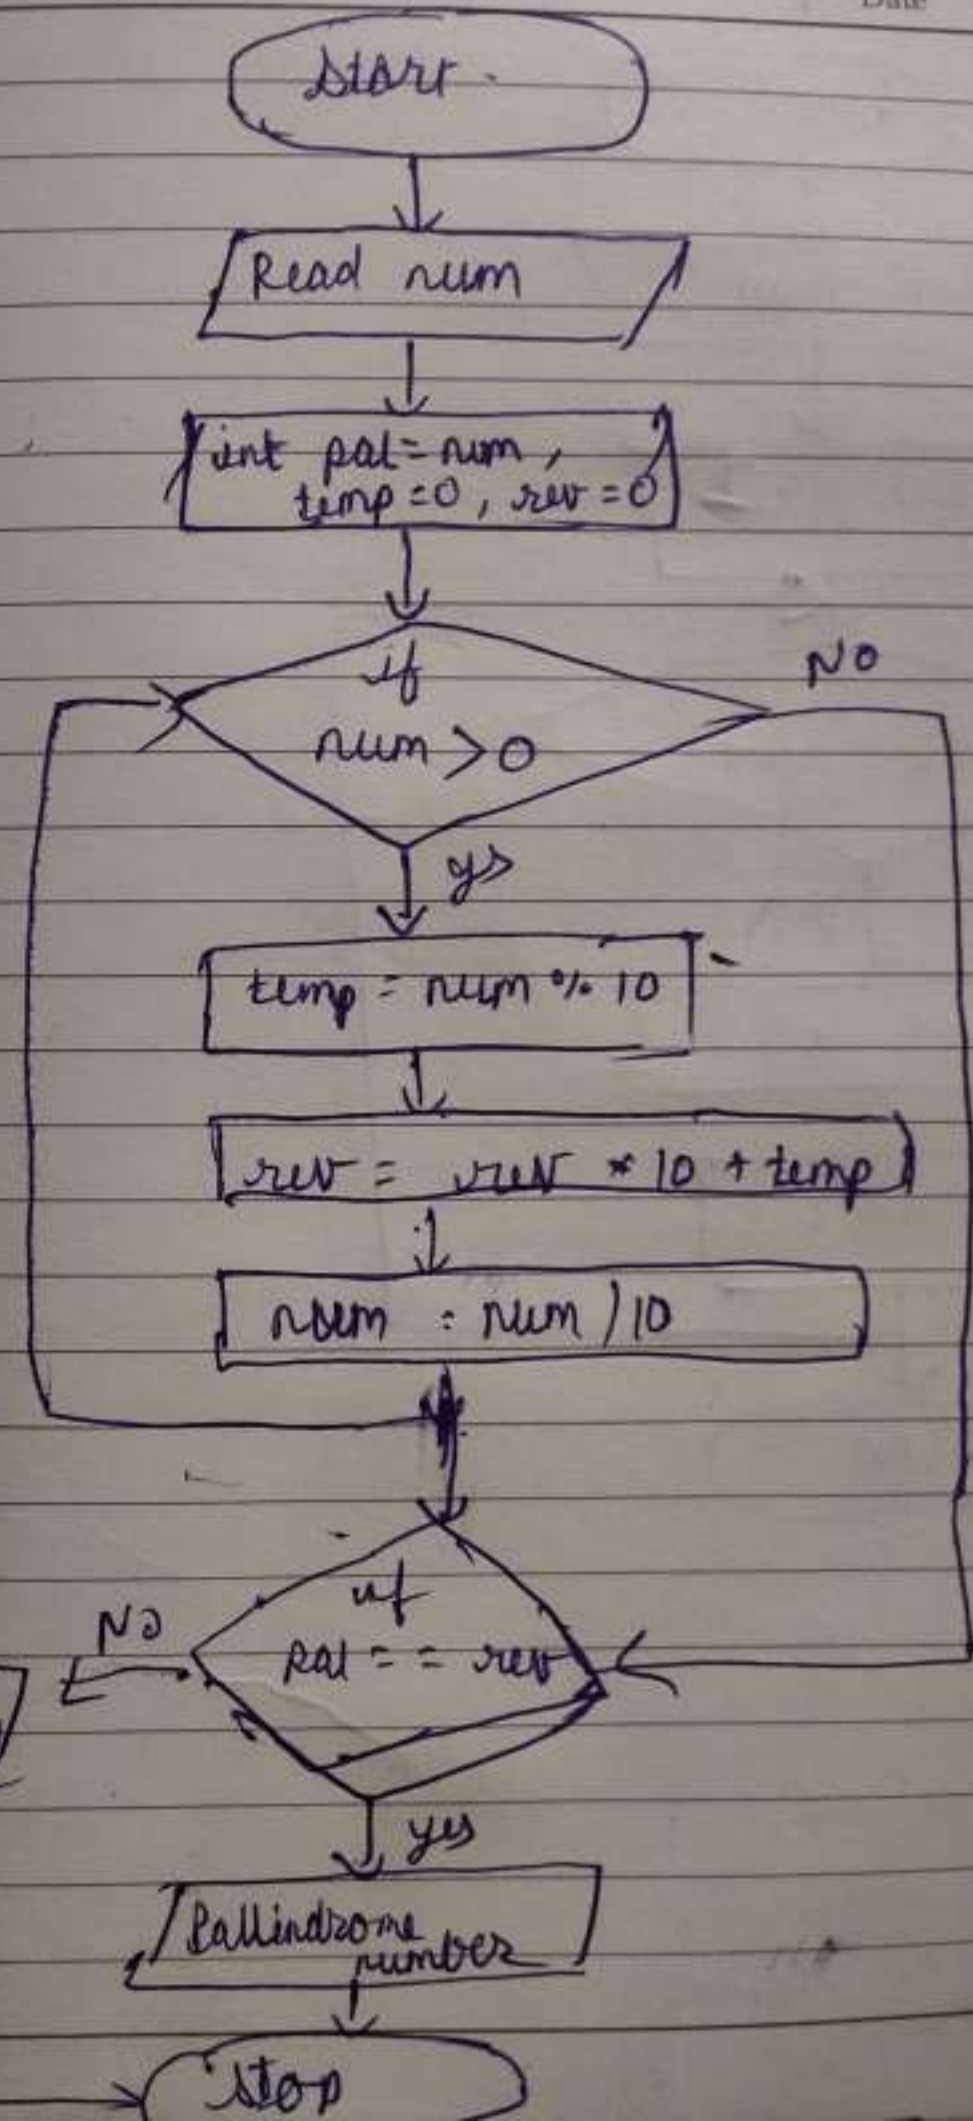 Date
Start
Read num
int pal = num,
temp = 0, rev = 0
if
num > 0
NO
yes
temp = num % 10
rev = rev * 10 + temp
num = num / 10
if
pal = = rev
NO
yes
Pallindrome
number
Stop